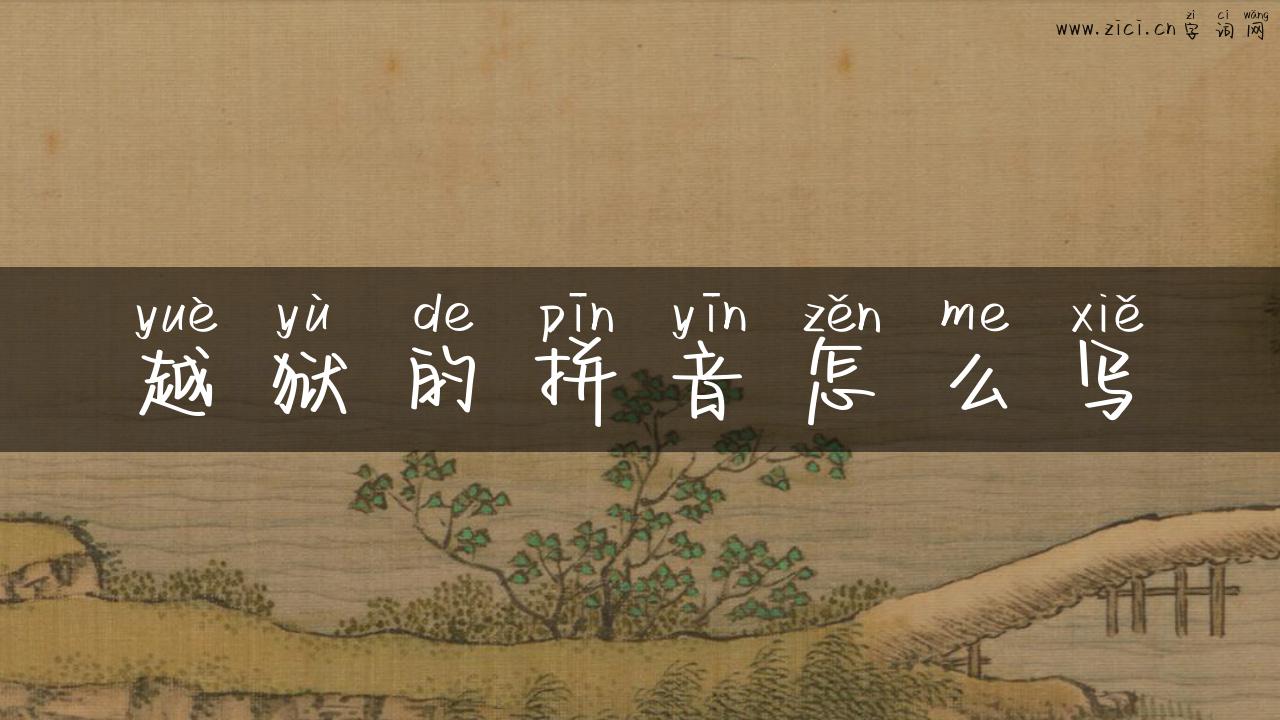 zì cí wǎng
www.zici.cn 字 词 网
yuè yù de pīn yīn zěn me xiě
越 狱 的 拼 音 怎 么 写